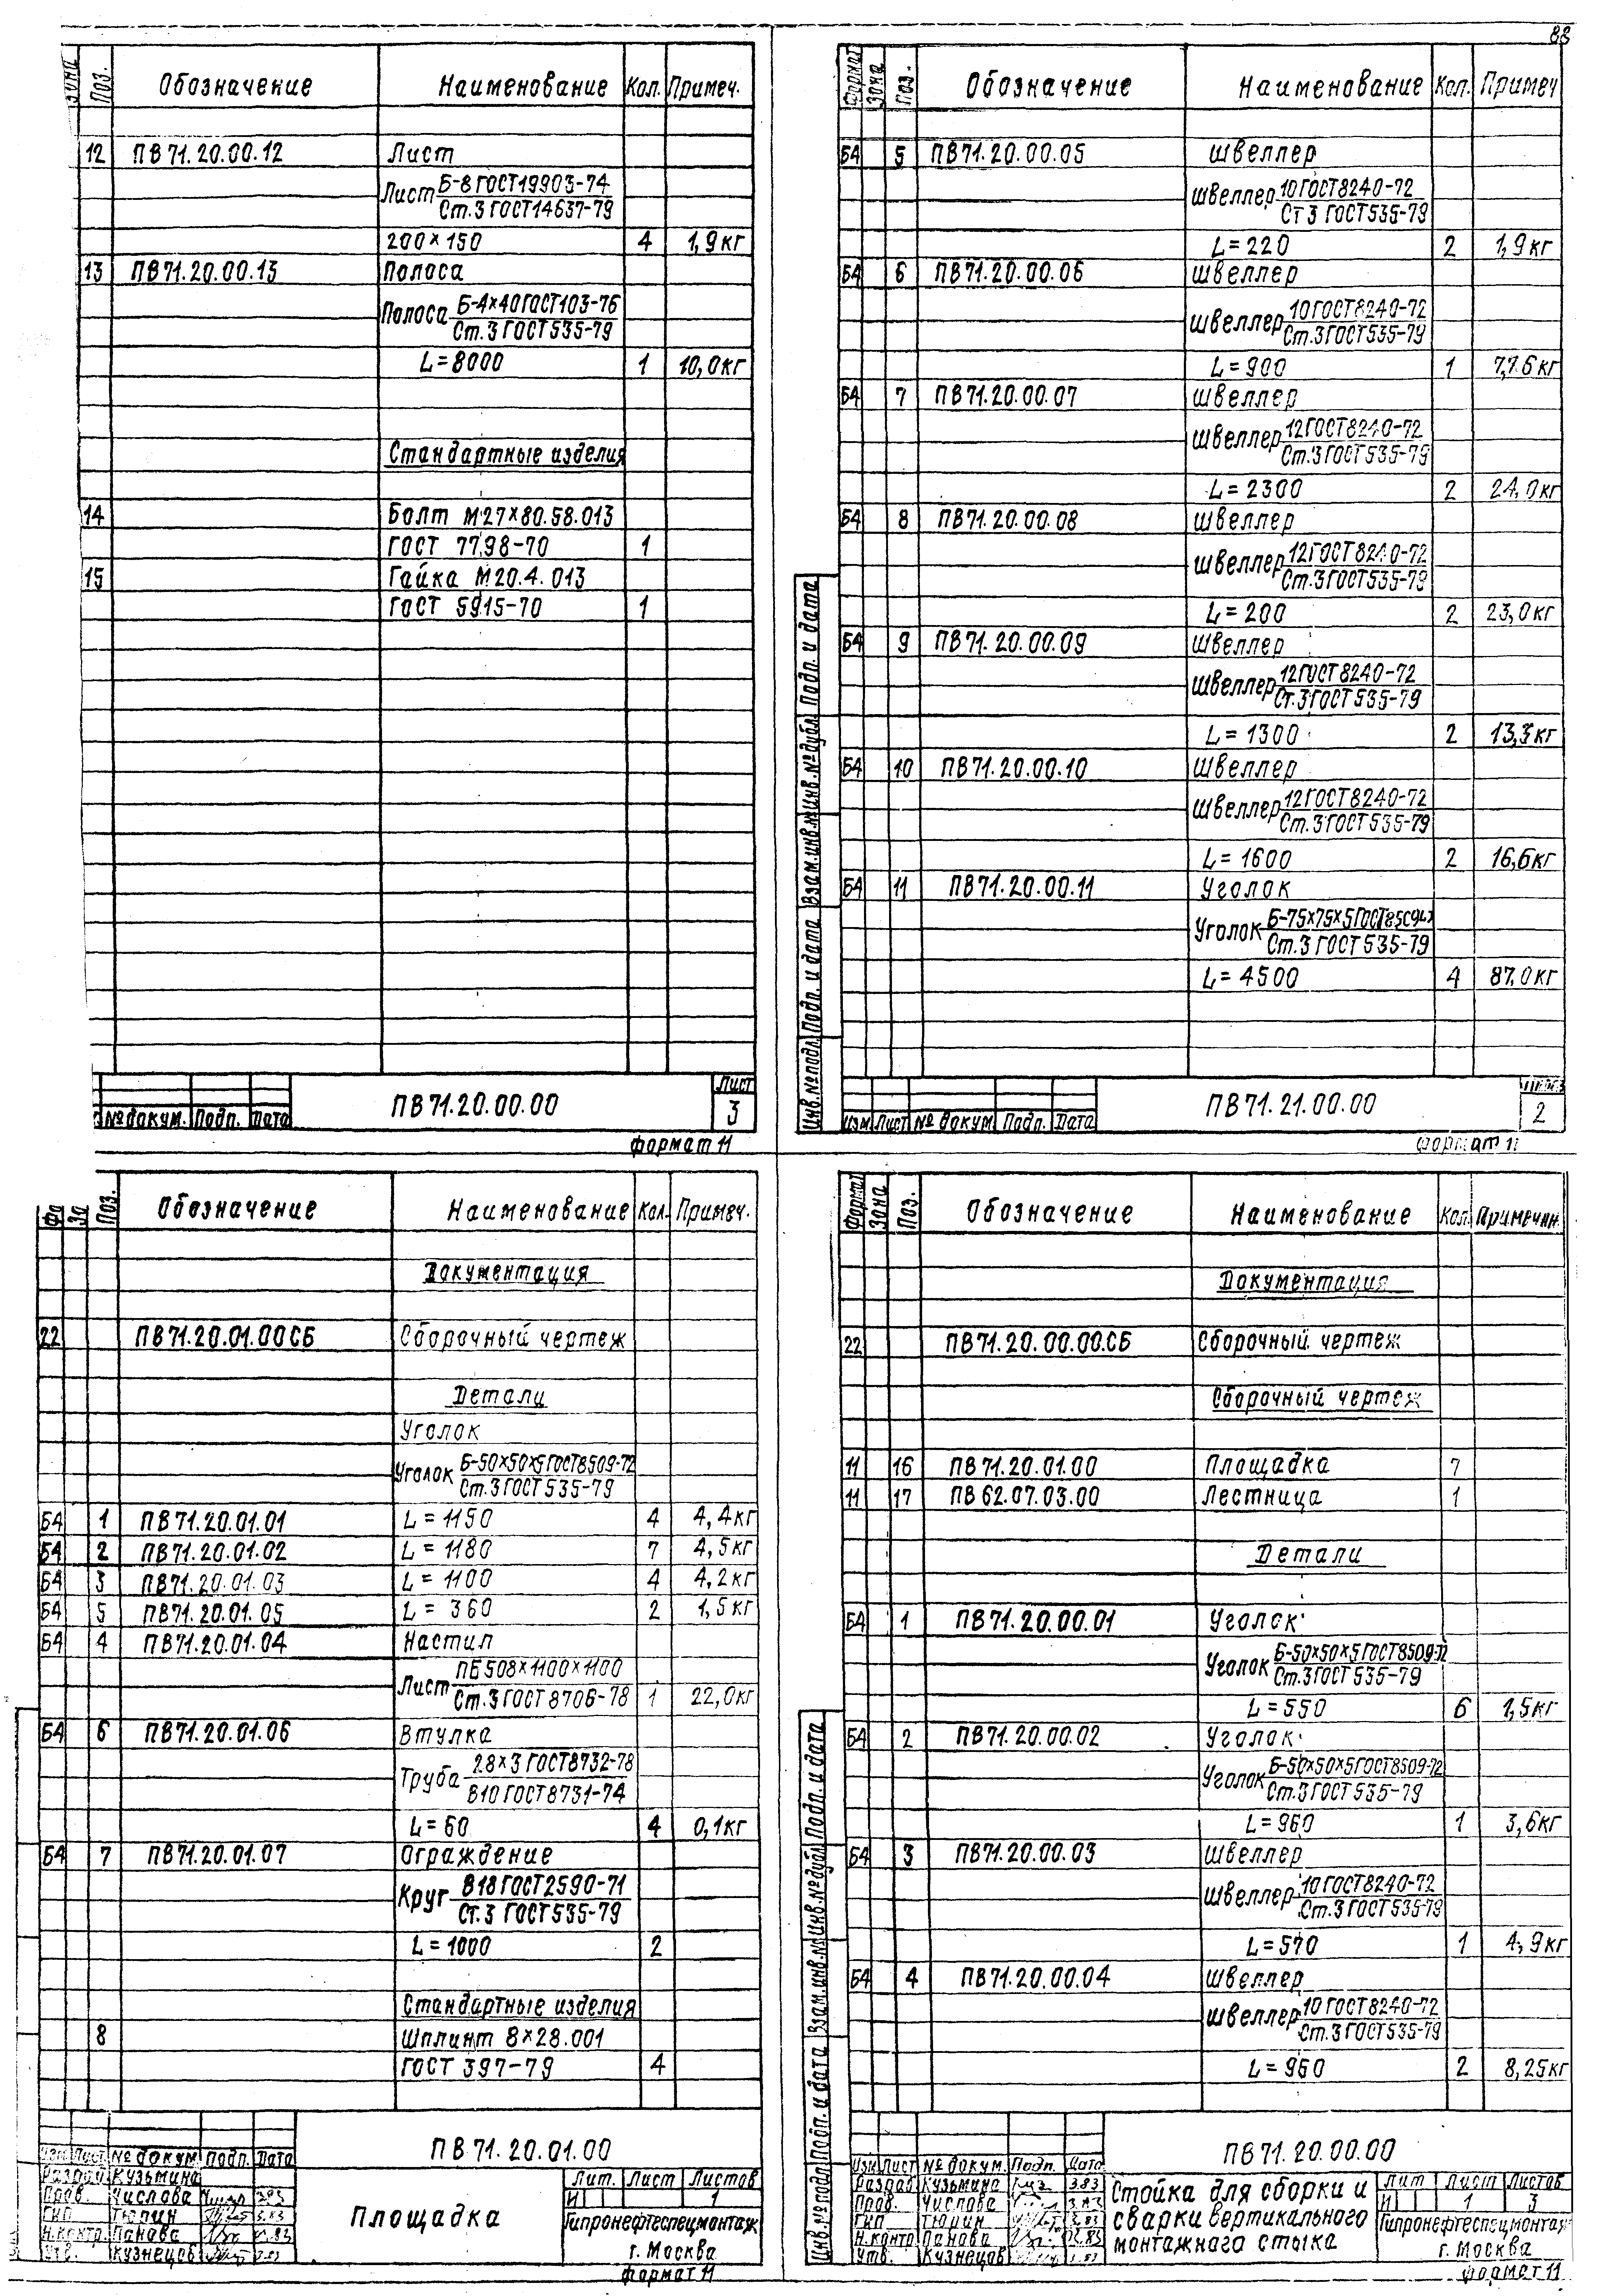 88
Зона Поз. Обозначение Наименование Кол. Примеч.
12 ПВ71.20.00.12 Лист
Лист Б-8 ГОСТ19903-74
Ст.3 ГОСТ14637-79
200×150 4 1,9кг
13 ПВ71.20.00.13 Полоса
Полоса Б-4×40ГОСТ103-76
Ст.3 ГОСТ535-79
L=8000 1 10,0кг
Стандартные изделия
14 Болт М27×80.58.013
ГОСТ 7798-70 1
15 Гайка М20.4.013
ГОСТ 5915-70 1
№ докум. Подп. Дата
ПВ71.20.00.00
Лист
3
формат 11
Формат Зона Поз. Обозначение Наименование Кол. Примеч
Б4 5 ПВ71.20.00.05 швеллер
швеллер 10ГОСТ8240-72
Ст3 ГОСТ535-79
L=220 2 1,9кг
Б4 6 ПВ71.20.00.06 швеллер
швеллер 10ГОСТ8240-72
Ст.3ГОСТ535-79
L=900 1 7,76кг
Б4 7 ПВ71.20.00.07 швеллер
швеллер 12ГОСТ8240-72
Ст.3ГОСТ535-79
L=2300 2 24,0кг
Б4 8 ПВ71.20.00.08 швеллер
швеллер 12ГОСТ8240-72
Ст.3ГОСТ535-79
L=200 2 23,0кг
Б4 9 ПВ71.20.00.09 швеллер
швеллер 12ГОСТ8240-72
Ст.3ГОСТ535-79
L=1300 2 13,3кг
Б4 10 ПВ71.20.00.10 швеллер
швеллер 12ГОСТ8240-72
Ст.3ГОСТ535-79
L=1600 2 16,6кг
Б4 11 ПВ71.20.00.11 Уголок
Уголок Б-75×75×5ГОСТ8509
Ст.3 ГОСТ535-79
L=4500 4 87,0кг
Инв.№подл. Подп. и дата Взам.инв.№ Инв.№дубл. Подп. и дата
Изм Лист № докум Подп. Дата
ПВ71.21.00.00
Лист
2
формат 11
Поз. Обозначение Наименование Кол. Примеч.
Документация
22 ПВ71.20.01.00СБ Сборочный чертеж
Детали
Уголок
Уголок Б-50×50×5ГОСТ8509-72
Ст.3ГОСТ535-79
Б4 1 ПВ71.20.01.01 L=1150 4 4,4кг
Б4 2 ПВ71.20.01.02 L=1180 7 4,5кг
Б4 3 ПВ71.20.01.03 L=1100 4 4,2кг
Б4 5 ПВ71.20.01.05 L=360 2 1,5кг
Б4 4 ПВ71.20.01.04 Настил
Лист ПБ508×1100×1100
Ст.3ГОСТ8706-78 1 22,0кг
Б4 6 ПВ71.20.01.06 Втулка
Труба 28×3 ГОСТ8732-78
В10 ГОСТ8731-74
L=60 4 0,1кг
Б4 7 ПВ71.20.01.07 Ограждение
Круг В18ГОСТ2590-71
Ст.3 ГОСТ535-79
L=1000 2
Стандартные изделия
8 Шплинт 8×28.001
ГОСТ 397-79 4
Изм Лист № докум Подп. Дата
Разраб Кузьмина
Пров. Числова 3.83
ГИП Тюпин 3.83
Н.контр. Панова
Утв. Кузнецов
ПВ71.20.01.00
Площадка
Лит. Лист Листов
И 1
Гипронефтеспецмонтаж
г. Москва
формат 11
Формат Зона Поз. Обозначение Наименование Кол. Примечан.
Документация
22 ПВ71.20.00.00.СБ Сборочный чертеж
Сборочный чертеж
11 16 ПВ71.20.01.00 Площадка 7
11 17 ПВ62.07.03.00 Лестница 1
Детали
Б4 1 ПВ71.20.00.01 Уголок
Уголок Б-50×50×5ГОСТ8509-72
Ст.3ГОСТ535-79
L=550 6 1,5кг
Б4 2 ПВ71.20.00.02 Уголок
Уголок Б-50×50×5ГОСТ8509-72
Ст.3ГОСТ535-79
L=960 1 3,6кг
Б4 3 ПВ71.20.00.03 швеллер
швеллер 10ГОСТ8240-72
Ст.3ГОСТ535-79
L=570 1 4,9кг
Б4 4 ПВ71.20.00.04 швеллер
швеллер 10ГОСТ8240-72
Ст.3ГОСТ535-79
L=960 2 8,25кг
Инв.№подл Подп. и дата Взам.инв.№ Инв.№дубл Подп. и дата
Изм Лист № докум. Подп. Дата
Разраб Кузьмина 3.83
Пров. Числова 3.83
ГИП Тюпин 3.83
Н.контр Панова
Утв. Кузнецов
ПВ71.20.00.00
Стойка для сборки и
сварки вертикального
монтажного стыка
Лит Лист Листов
И 1 3
Гипронефтеспецмонтаж
г. Москва
формат 11